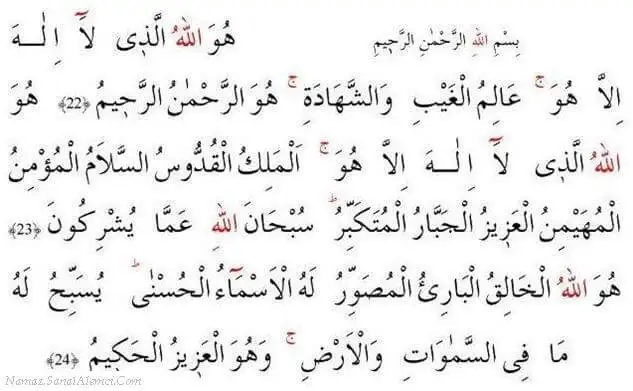 بِسْمِ اللهِ الرَّحْمٰنِ الرَّحٖيمِ هُوَ اللهُ الَّذٖى لَٓا اِلٰـهَ
اِلَّا هُوَ ۚ عَالِمُ الْغَيْبِ وَالشَّهَادَةِ ۚ هُوَ الرَّحْمٰنُ الرَّحٖيمُ ﴿22﴾ هُوَ
اللهُ الَّذٖى لَٓا اِلٰـهَ اِلَّا هُوَ ۚ اَلْمَلِكُ الْقُدُّوسُ السَّلَامُ الْمُؤْمِنُ
الْمُهَيْمِنُ الْعَزٖيزُ الْجَبَّارُ الْمُتَكَبِّرُ ۜ سُبْحَانَ اللهِ عَمَّا يُشْرِكُونَ ﴿23﴾
هُوَ اللهُ الْخَالِقُ الْبَارِئُ الْمُصَوِّرُ لَهُ الْاَسْمَٓاءُ الْحُسْنٰى ۜ يُسَبِّحُ لَهُ
مَا فِى السَّمٰوَاتِ وَالْاَرْضِ ۚ وَهُوَ الْعَزٖيزُ الْحَكٖيمُ ﴿24﴾
Namaz.SanalAlemci.Com